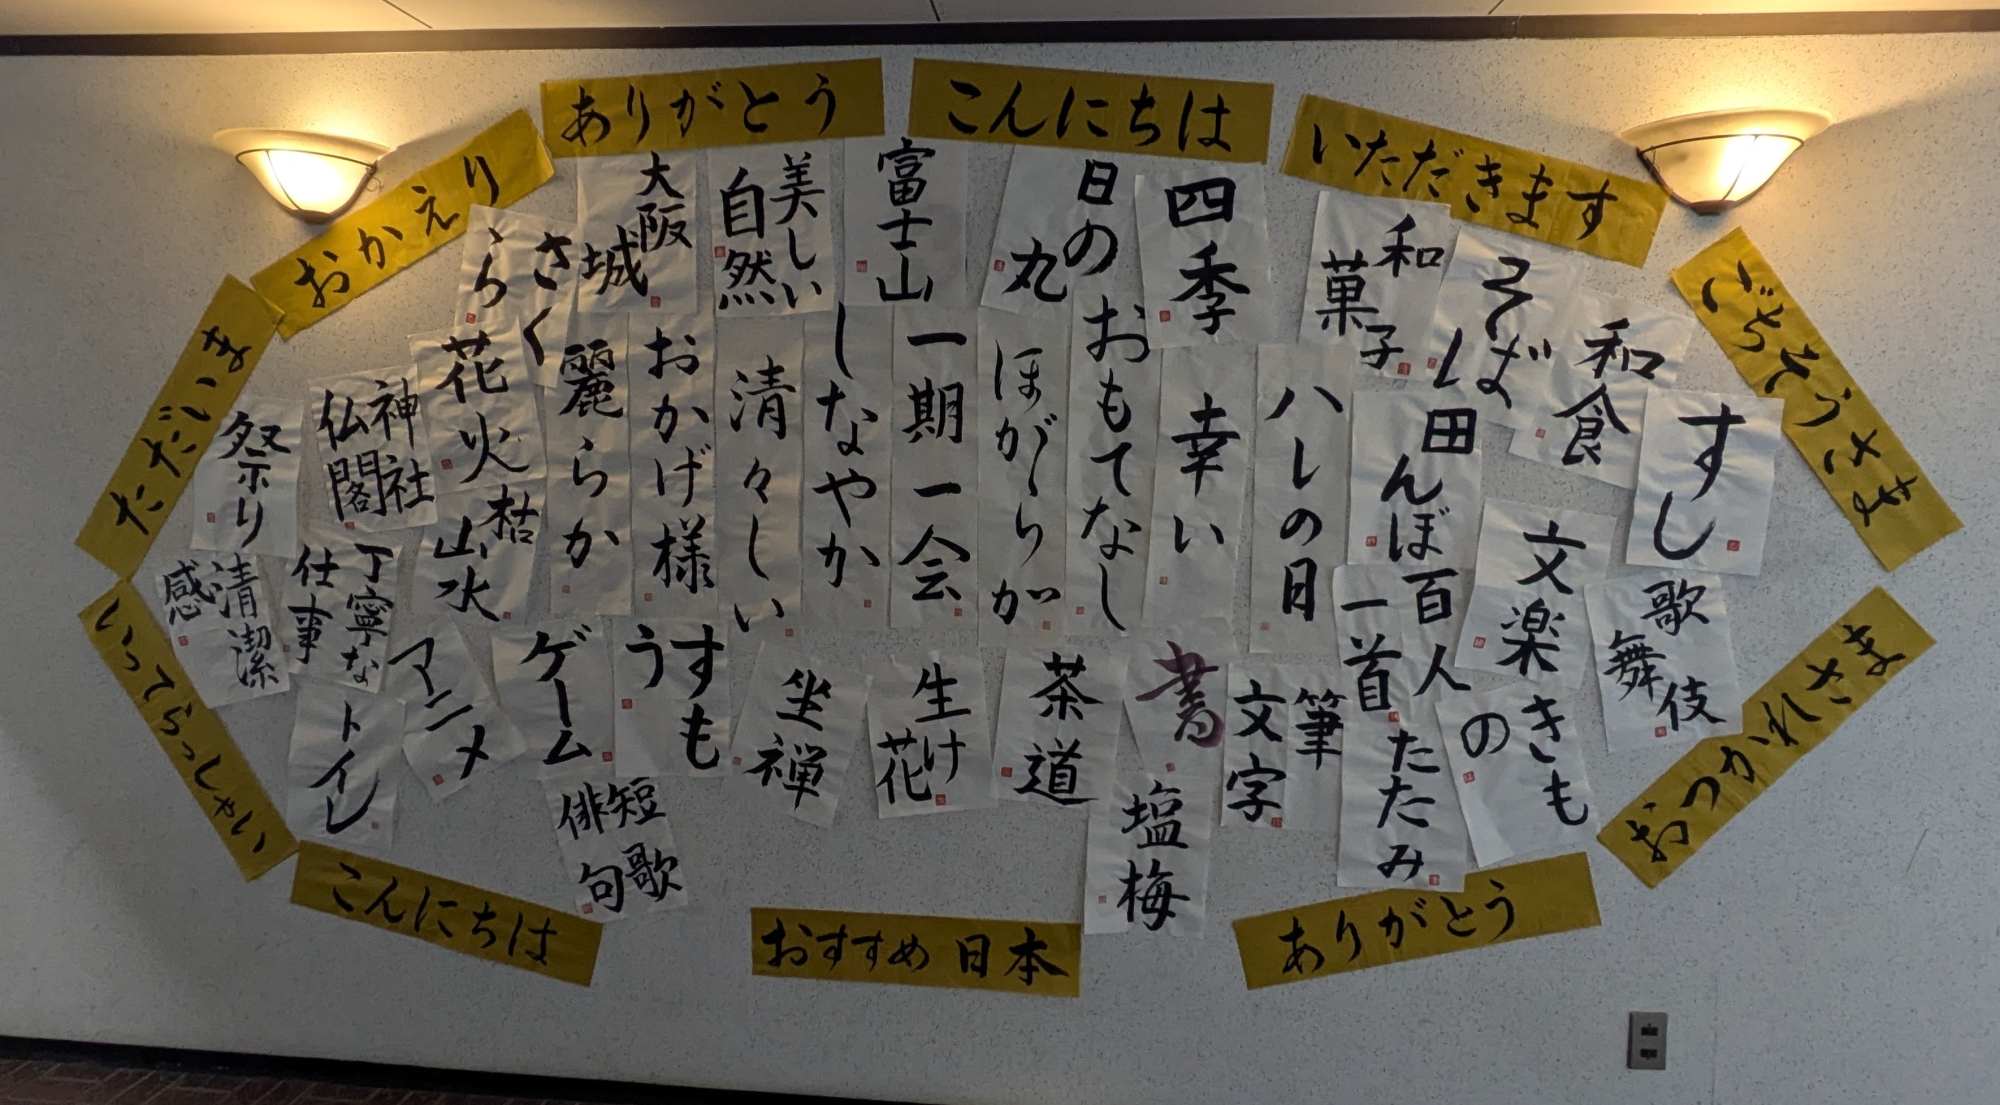 ありがとう
こんにちは
いただきます
ごちそうさま
おつかれさま
ありがとう
おすすめ 日本
こんにちは
いってらっしゃい
ただいま
おかえり
さくら
大阪城
美しい自然
富士山
日の丸
四季
和菓子
そば
和食
すし
祭り
神社仏閣
花火
麗らか
おかげ様
清々しい
しなやか
一期一会
ほがらか
おもてなし
幸い
ハレの日
田んぼ
文楽
歌舞伎
清潔感
丁寧な仕事
枯山水
トイレ
アニメ
ゲーム
すもう
坐禅
生け花
茶道
書
筆文字
百人一首
たたみ
きもの
短歌
俳句
塩梅